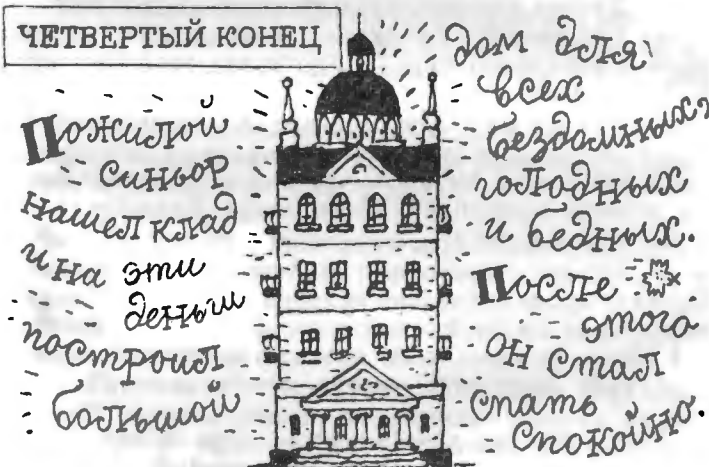 ЧЕТВЕРТЫЙ КОНЕЦ
Пожилой
синьор
нашел клад
и на эти
деньги
построил
большой
дом для
всех
бездомных,
голодных
и бедных.
После
этого
он стал
спать
спокойно.